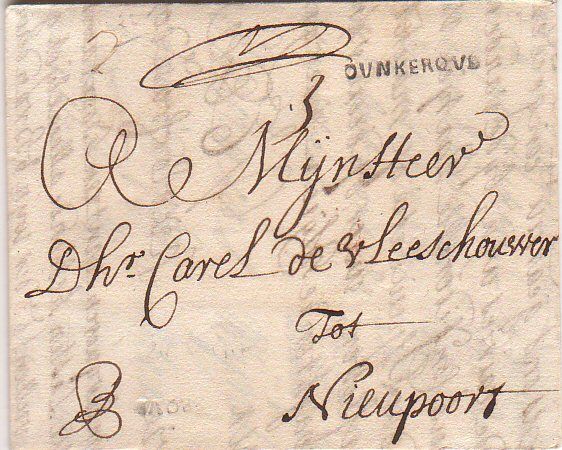 DUNKERQUE
3
A Mijnheer
Dhr. Carel de vleeschouwer
Tot
Nieupoort